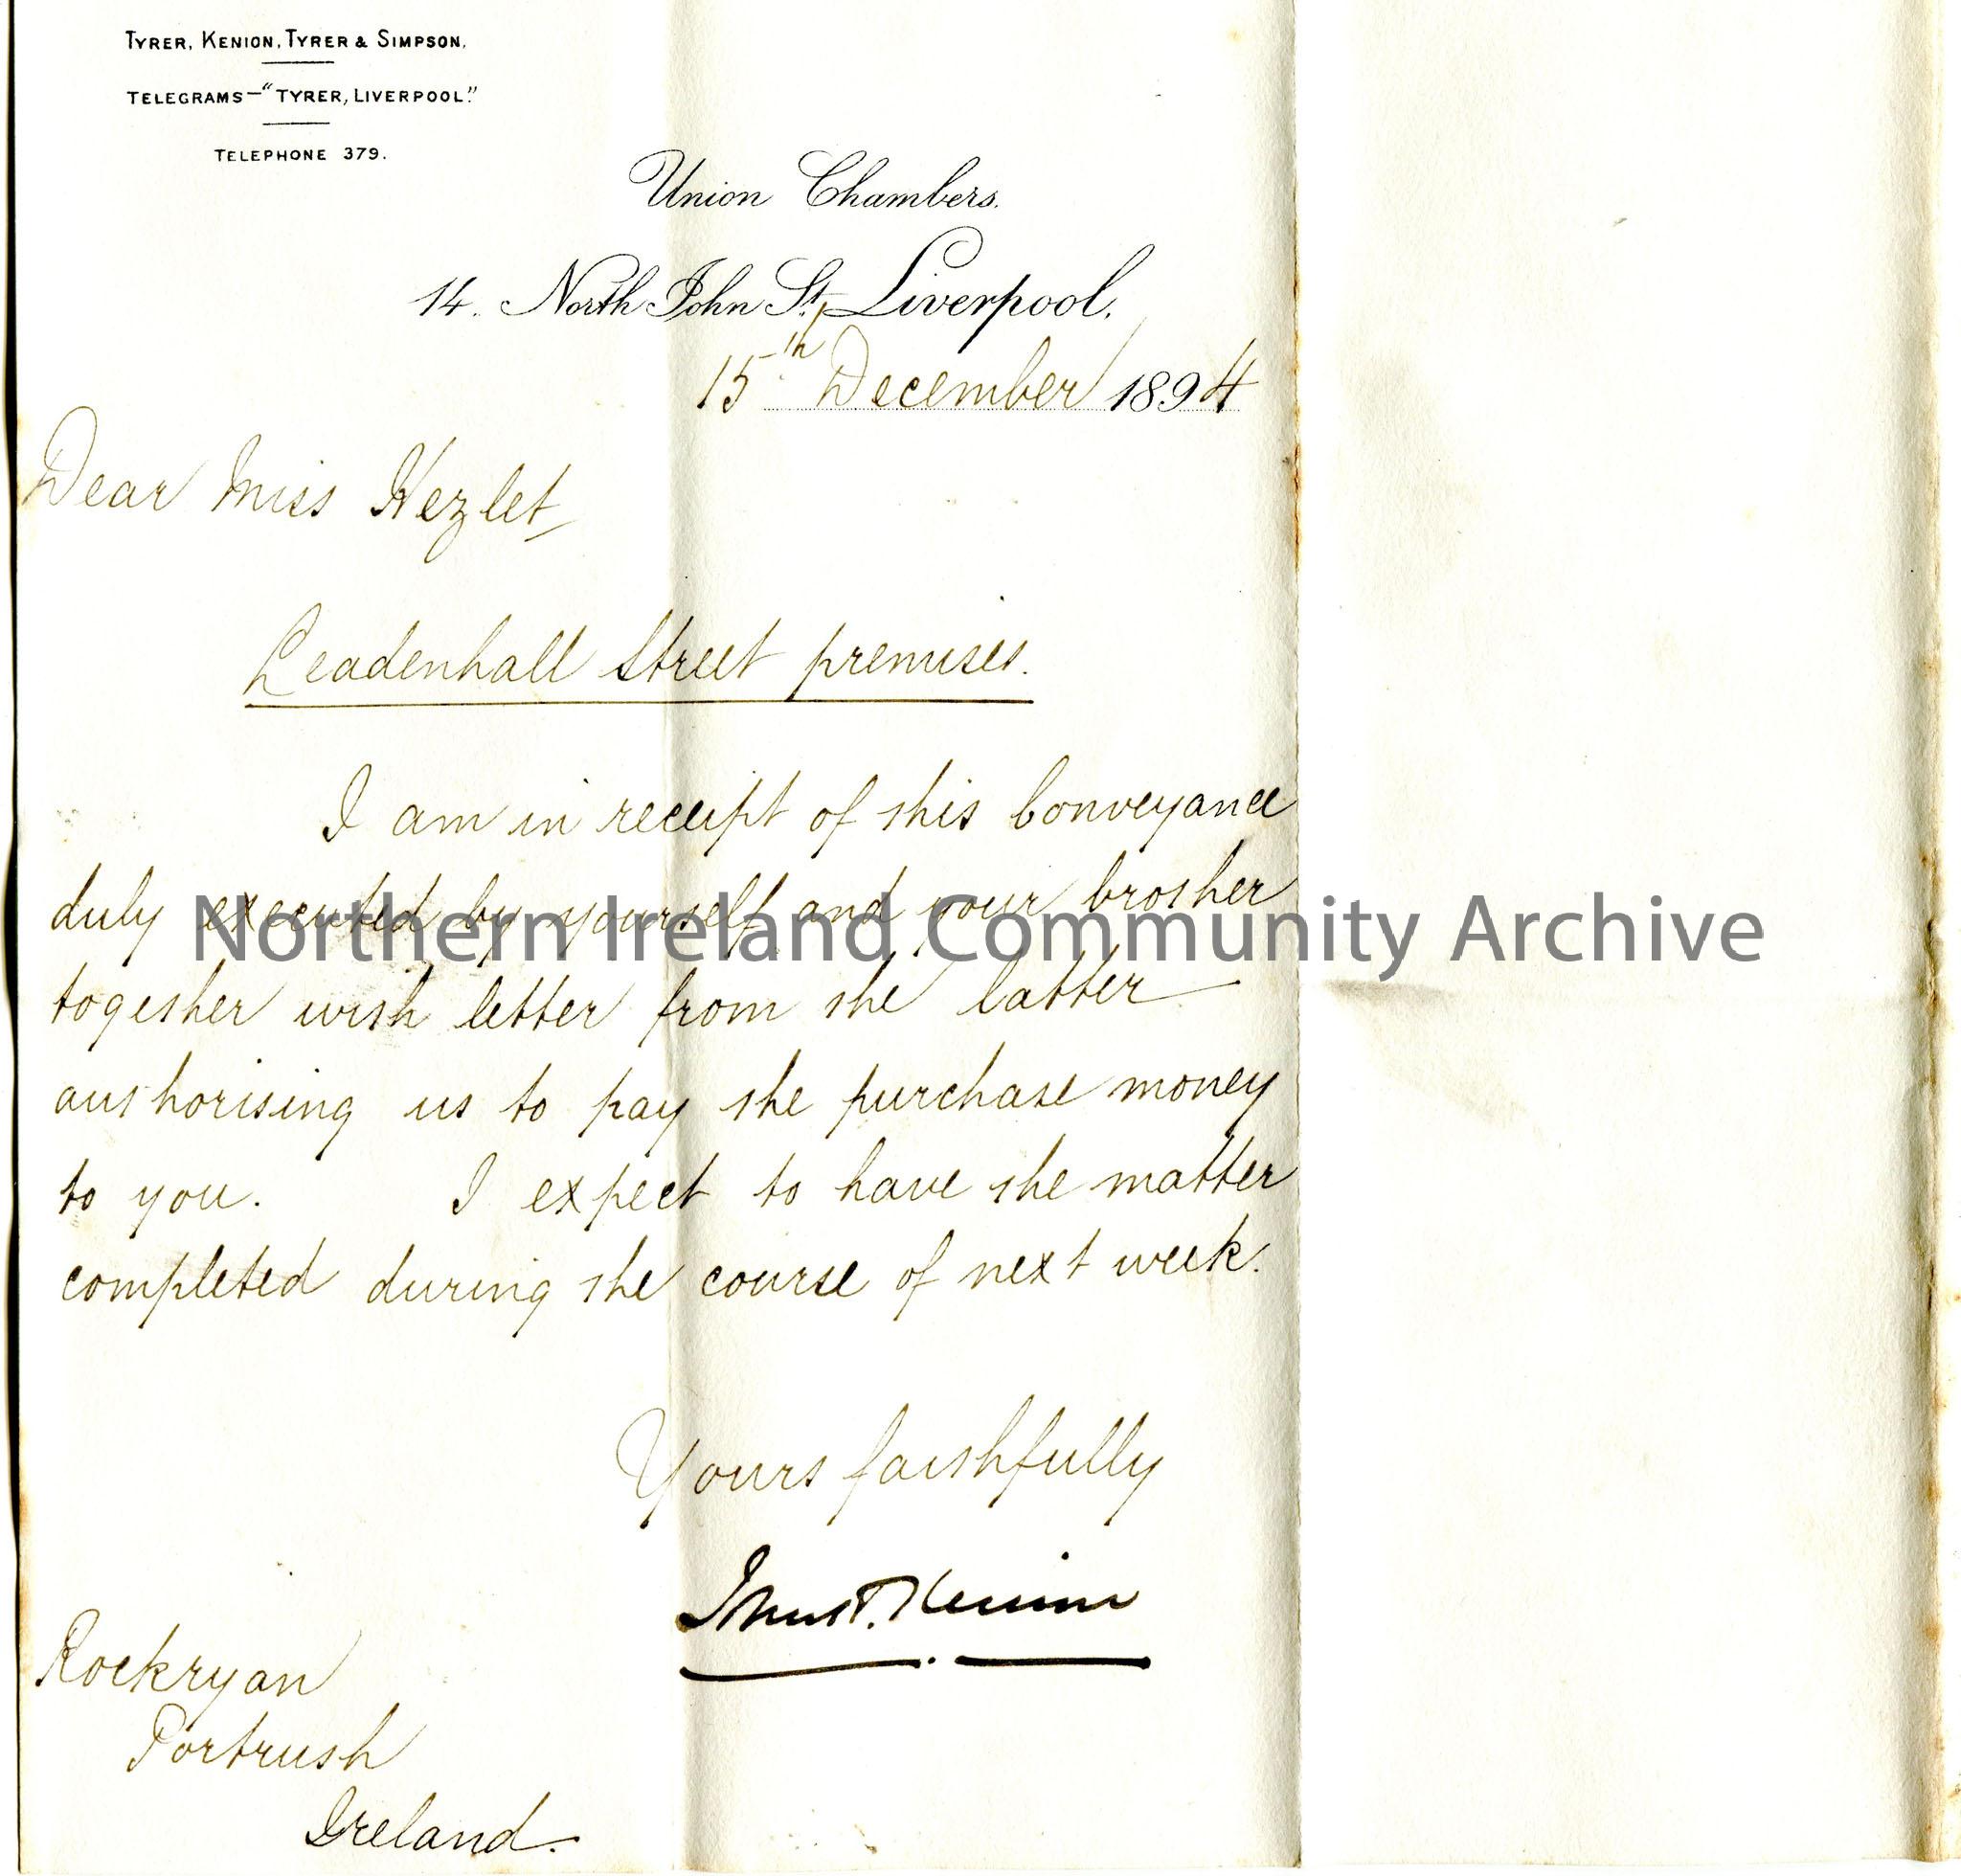 TYRER, KENION, TYRER & SIMPSON.
TELEGRAMS—"TYRER, LIVERPOOL."
TELEPHONE 379.
Union Chambers.
14. North John St. Liverpool.
15th December 1894
Dear Miss Hezlet,
Leadenhall Street premises.
I am in receipt of this Conveyance
duly executed by yourself and your brother
Northern Ireland Community Archive
together with letter from the latter
authorising us to pay the purchase money
to you. I expect to have the matter
completed during the course of next week.
Yours faithfully
Kenion
Rockryan
Portrush
Ireland.